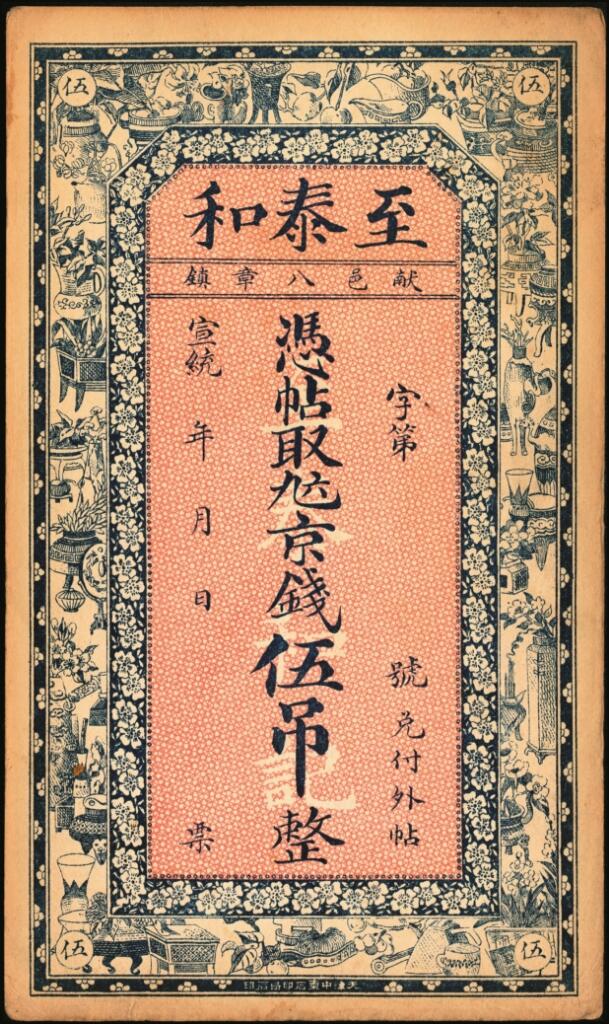 伍
伍
至泰和
献邑八章鎮
字第　號兌付外帖
憑帖取九六京錢伍吊整
宣統　年　月　日　票
伍
伍